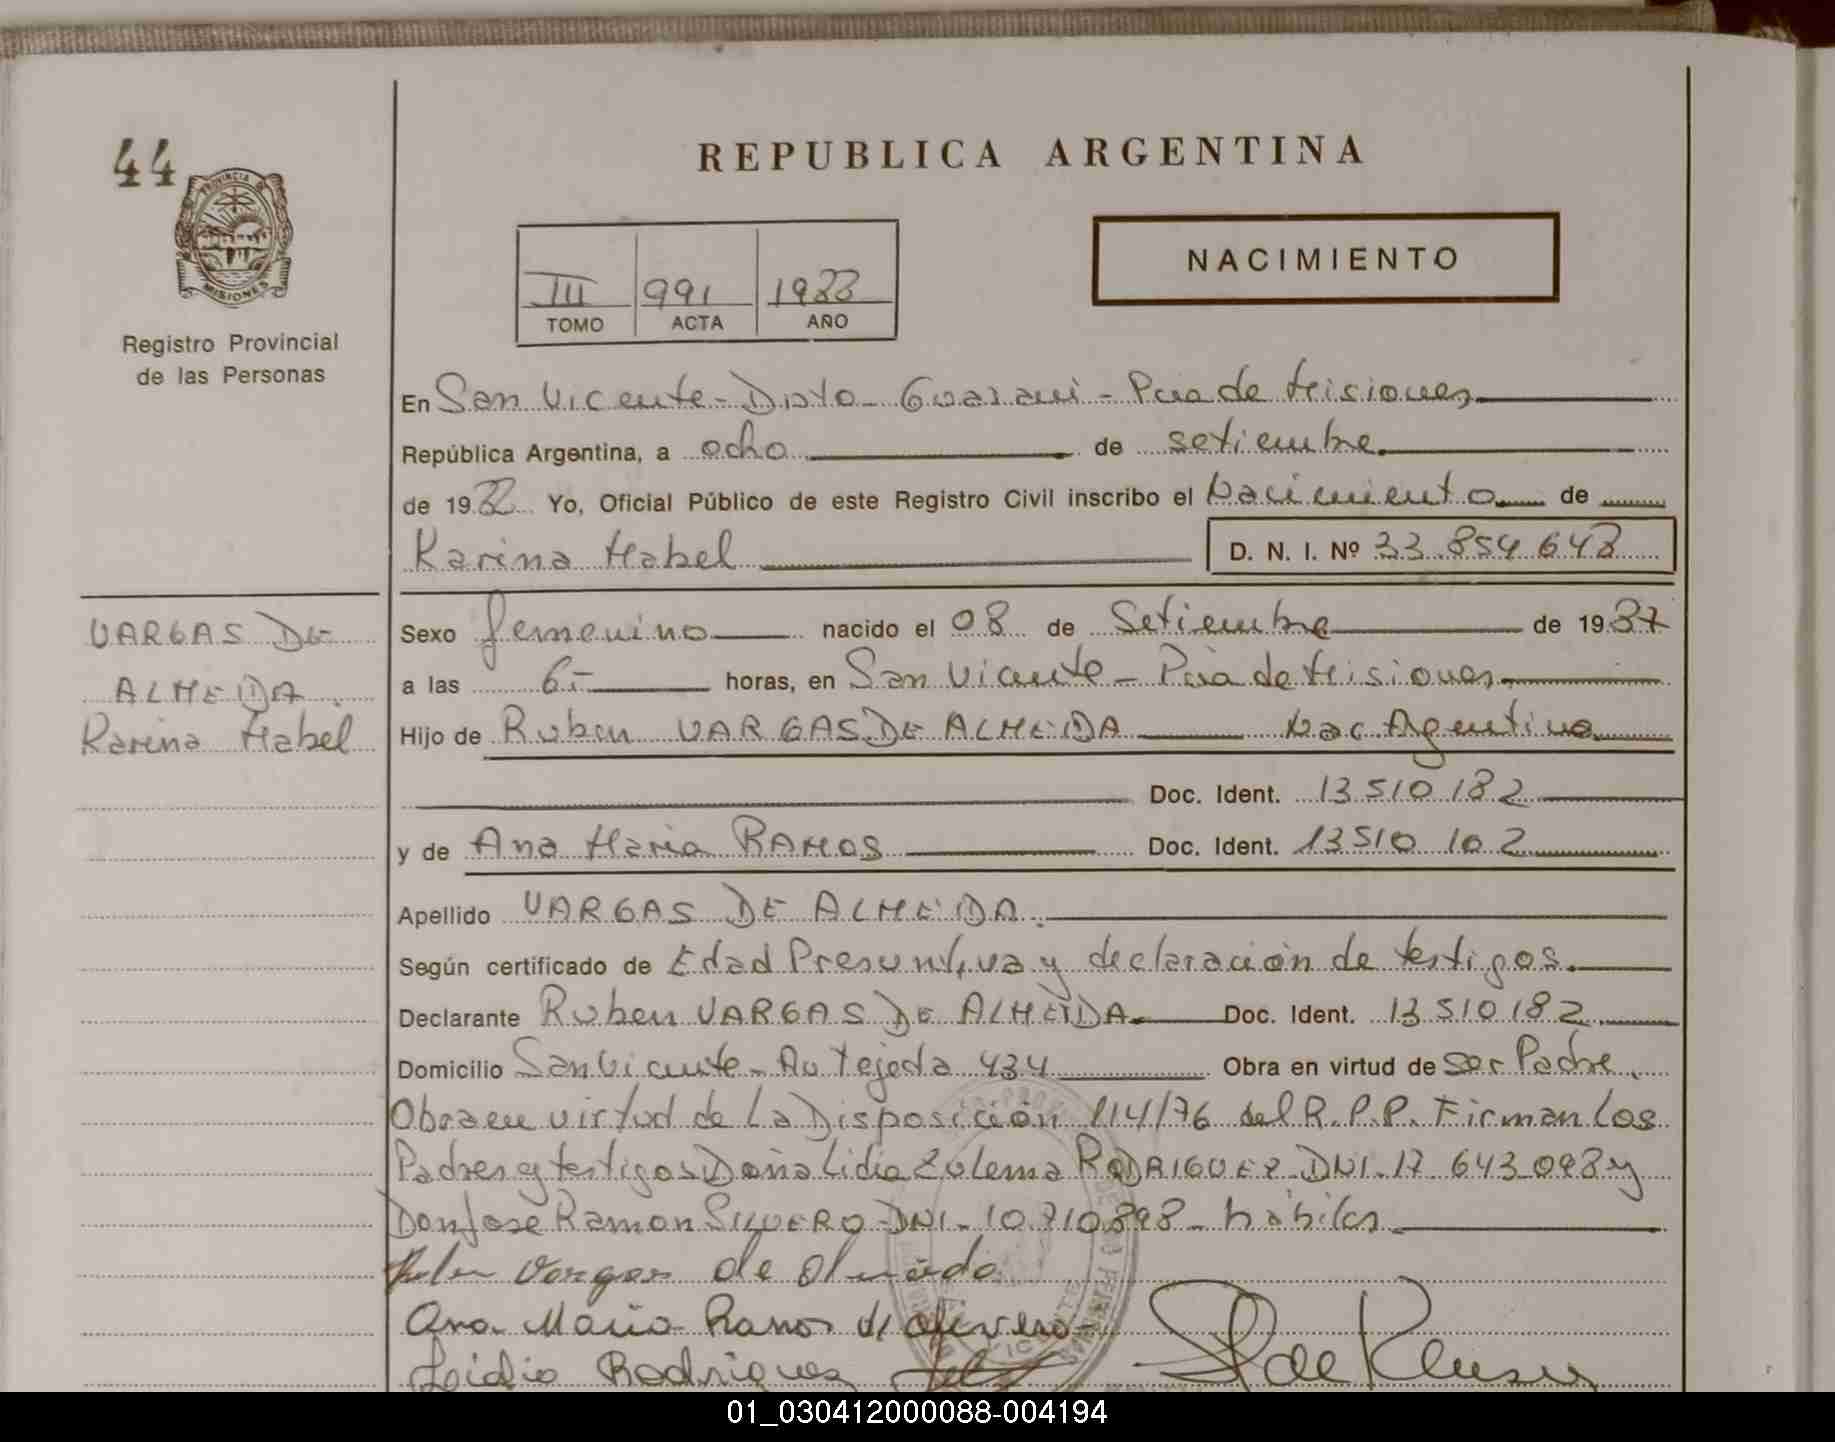 44
REPUBLICA ARGENTINA
PROVINCIA DE
MISIONES
Registro Provincial
de las Personas
III 991 1988
TOMO ACTA AÑO
NACIMIENTO
En San Vicente - Dpto - Guarani - Pcia de Misiones
República Argentina, a ocho de setiembre
de 1988 Yo, Oficial Público de este Registro Civil inscribo el Nacimiento de
Karina Mabel D. N. I. Nº 33.854.648
VARGAS DE
ALMEIDA
Karina Mabel
Sexo femenino nacido el 08 de Setiembre de 1987
a las 6- horas, en San Vicente - Pcia de Misiones
Hijo de Ruben VARGAS DE ALMEIDA Nac Argentina
Doc. Ident. 13 510 182
y de Ana Maria RAMOS Doc. Ident. 13510 102
Apellido VARGAS DE ALMEIDA.
Según certificado de Edad Presuntiva y declaración de testigos.
Declarante Ruben VARGAS DE ALMEIDA Doc. Ident. 13 510 182
Domicilio San Vicente - Av Tejeda 434 Obra en virtud de ser Padre.
Obra en virtud de La Disposición 114/76 del R.P.P. Firman Los
Padres y testigos Doña Lidia Zulema RODRIGUEZ - DNI - 17 643 098 y
Don Jose Ramon SILVERO - DNI - 10.710.898 - habiles
Vargas de
Ana Maria Ramos de
Lidia Rodriguez
01_030412000088-004194